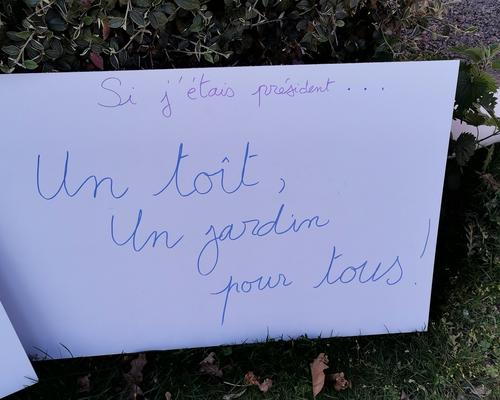 Si j'étais président...
Un toît,
Un jardin
pour tous!